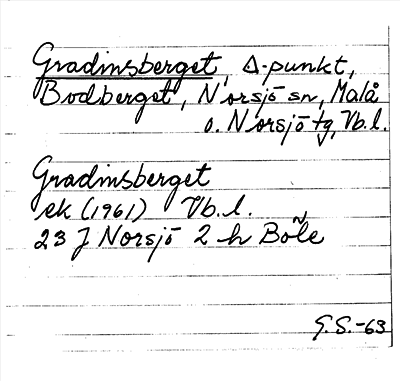 Gradinsberget, Δ-punkt,
Bodberget, Norsjö sn, Malå
o. Norsjö tg, Vb. l.
Gradinsberget
ek (1961) Vb. l.
23 J Norsjö 2 h Böle
G.S.-63